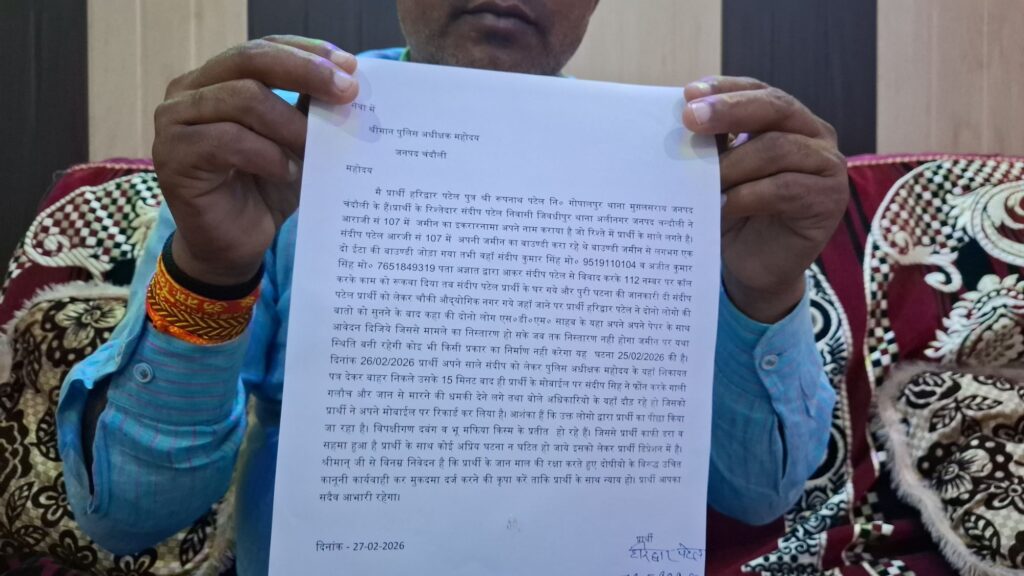 सेवा में
श्रीमान पुलिस अधीक्षक महोदय
जनपद चंदौली
महोदय
मै प्रार्थी हरिद्वार पटेल पुत्र श्री रूपनाथ पटेल नि० गोपालपुर थाना मुगलसराय जनपद
चंदौली के हैं।प्रार्थी के रिश्तेदार संदीप पटेल निवासी जिवधीपुर थाना अलीनगर जनपद चन्दौली ने
आराजी सं 107 में जमीन का इकरारनामा अपने नाम कराया है जो रिश्ते में प्रार्थी के साले लगते है।
संदीप पटेल आरजी सं 107 में अपनी जमीन का बाउण्डी करा रहे थे बाउण्डी जमीन से लगभग एक
दो ईटा की बाउण्डी जोडा गया तभी वहाँ संदीप कुमार सिंह मो० 9519110104 व अजीत कुमार
सिंह मो० 7651849319 पता अज्ञात द्वारा आकर संदीप पटेल से विवाद करके 112 नम्बर पर कॉल
करके काम को रूकवा दिया तब संदीप पटेल प्रार्थी के घर गये और पुरी घटना की जानकारी दी संदीप
पटेल प्रार्थी को लेकर चौकी औद्योगिक नगर गये जहां जाने पर प्रार्थी हरिद्वार पटेल ने दोनो लोगो की
बातो को सुनने के बाद कहा की दोनो लोग एस०डी०एम० साहब के यहा अपने अपने पेपर के साथ
आवेदन दिजिये जिससे मामले का निस्तारण हो सके जब तक निस्तारण नही होगा जमीन पर यथा
स्थिति बनी रहेगी कोइ भी किसी प्रकार का निर्माण नही करेगा यह घटना 25/02/2026 की है।
दिनांक 26/02/2026 प्रार्थी अपने साले संदीप को लेकर पुलिस अधीक्षक महोदय के यहां शिकायत
पत्र देकर बाहर निकले उसके 15 मिनट बाद ही प्रार्थी के मोबाईल पर संदीप सिंह ने फोन करके गाली
गलौच और जान से मारने की धमकी देने लगे तथा बोले अधिकारियो के यहाँ दौड रहे हो जिसको
प्रार्थी ने अपने मोबाईल पर रिकार्ड कर लिया है। आशंका हैं कि उक्त लोगो द्वारा प्रार्थी का पीछा किया
जा रहा है। विपक्षीगण दबंग व भू मफिया किस्म के प्रतीत हो रहे हैं। जिससे प्रार्थी काफी डरा व
सहमा हुआ है प्रार्थी के साथ कोई अप्रिय घटना न घटित हो जाये इसको लेकर प्रार्थी डिप्रेशन में है।
श्रीमान् जी से विनम्र निवेदन है कि प्रार्थी के जान माल की रक्षा करते हुए दोषीयो के विरुद्ध उचित
कानूनी कार्यवाही कर मुकदमा दर्ज करने की कृपा करें ताकि प्रार्थी के साथ न्याय हो। प्रार्थी आपका
सदैव आभारी रहेगा।
दिनांक - 27-02-2026
प्रार्थी
हरिद्वार पटेल